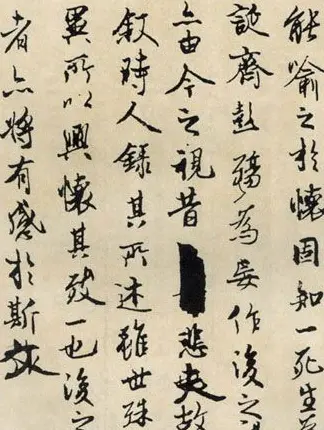 能喻之於懷固知一死生
誕齊彭殤為妄作後之
亦由今之視昔悲夫故
敘時人錄其所述雖世殊
異所以興懷其致一也後之
者亦將有感於斯文